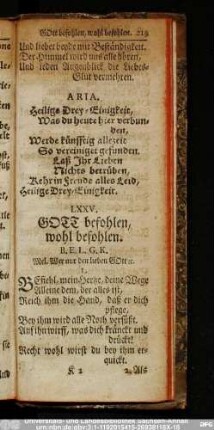 GOtt befohlen, wohl befohlen. 219
Und lieber beyde mit Beständigkeit.
Der Himmel wird uns alle hören,
Und jeden Augenblick die Liebes-
Glut vermehren.
ARIA.
Heilige Drey-Einigkeit,
Was du heute hier verbun-
den,
Werde künfftig allezeit
So vereiniget gefunden.
Laß Ihr Lieben
Nichts betrüben,
Kehr in Freude alles Leid,
Heilge Drey-Einigkeit.
LXXV.
GOTT befohlen,
wohl befohlen.
B. E. L. G. K.
Mel. Wer nur den lieben GOtt ꝛc.
1.
BEfiehl, mein Hertze, deine Wege
Alleine dem, der alles ist,
Reich ihm die Hand, daß er dich
pflege,
Bey ihm wird alle Noth versüßt.
Auf ihn wirff, was dich kränckt und
drückt!
Recht wohl wirst du bey ihm er-
quickt.
K 2
2. Als
urn:nbn:de:gbv:3:1-1192015415-269281118X-16